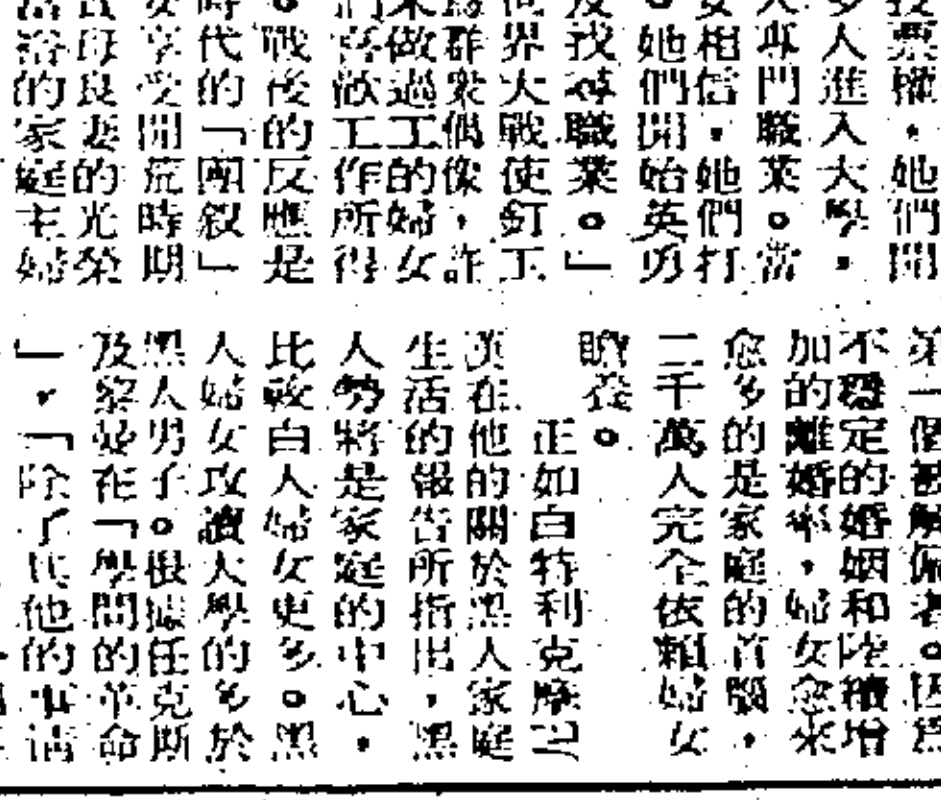 票權，她們開
人進入大學，
專門職業。當
相信，她們打
她們開始英勇
找尋職業。」
界大戰使釘工
群衆偶像，詐
做過工的婦女
喜歡工作所得
戰後的反應是
代的「團叙」
享受開荒時期
母良妻的光榮
的家庭主婦
第一個被解僱者。因爲
不穩定的婚姻和積增
加的離婚率，婦女愈來
愈多的是家庭的首腦，
二千萬人完全依賴婦女
贍養。
正如白特利克摩尼
漢在他的關於黑人家庭
生活的報告所指出，黑
人勢將是家庭的中心，
比較白人婦女更多。黑
人婦女攻讀大學的多於
黑人男子。根據任克斯
及黎曼在「學問的革命
」，「除了其他的事情